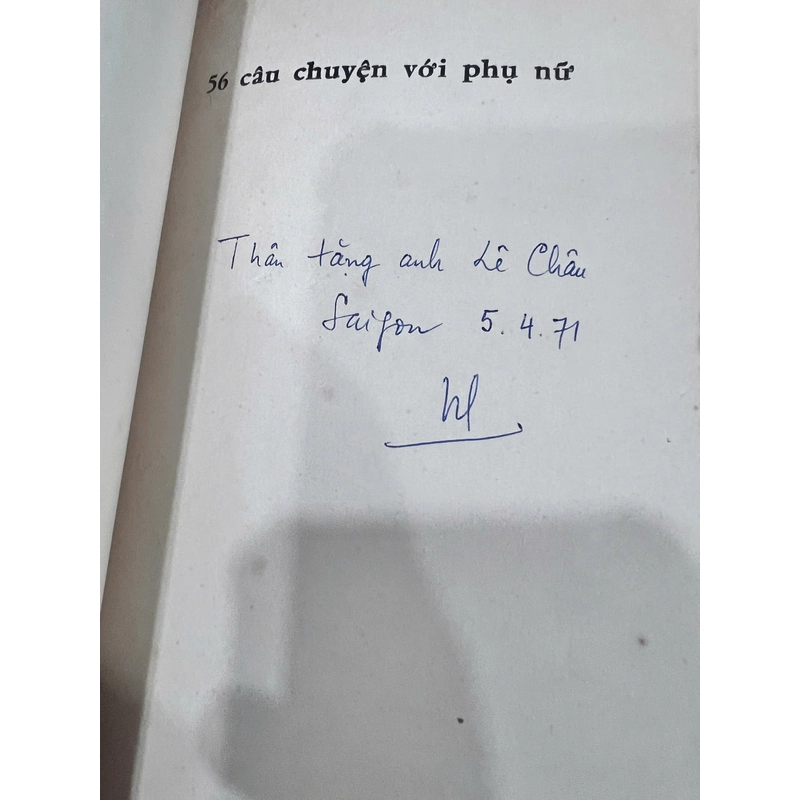 56 câu chuyện với phụ nữ
Thân tặng anh Lê Châu
Saigon 5.4.71